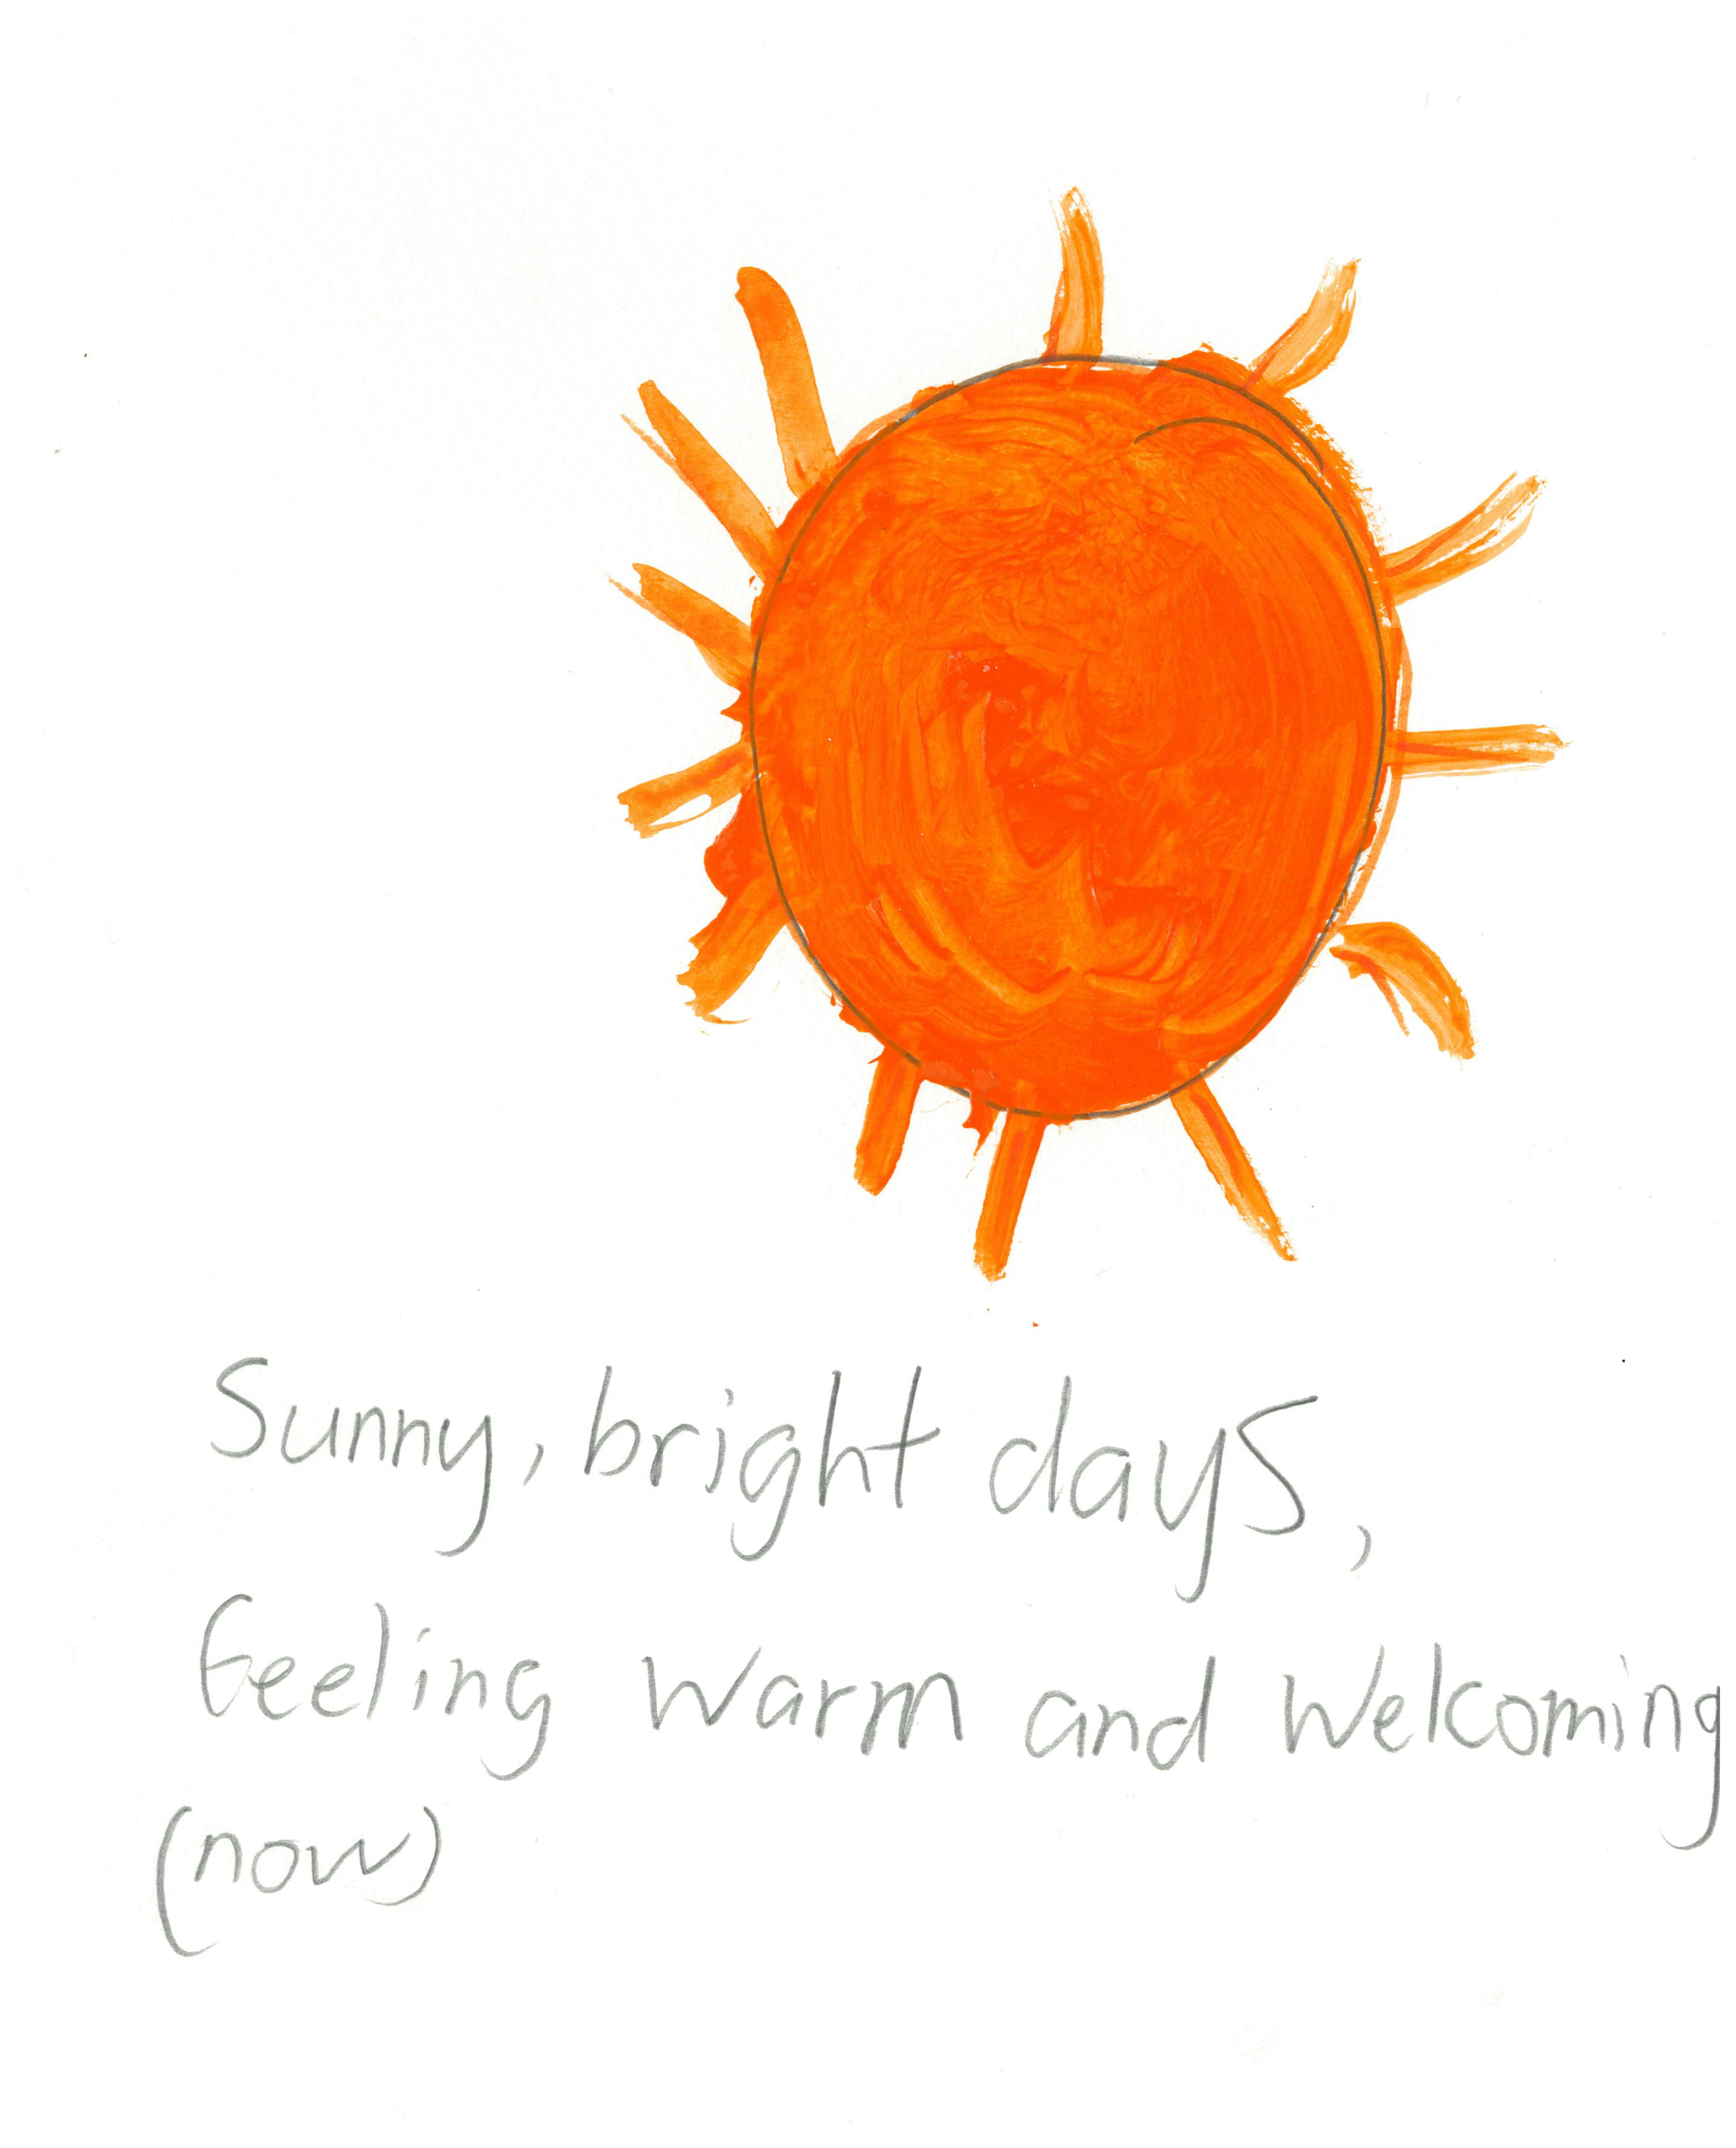 Sunny, bright days,
feeling warm and welcoming
(now)